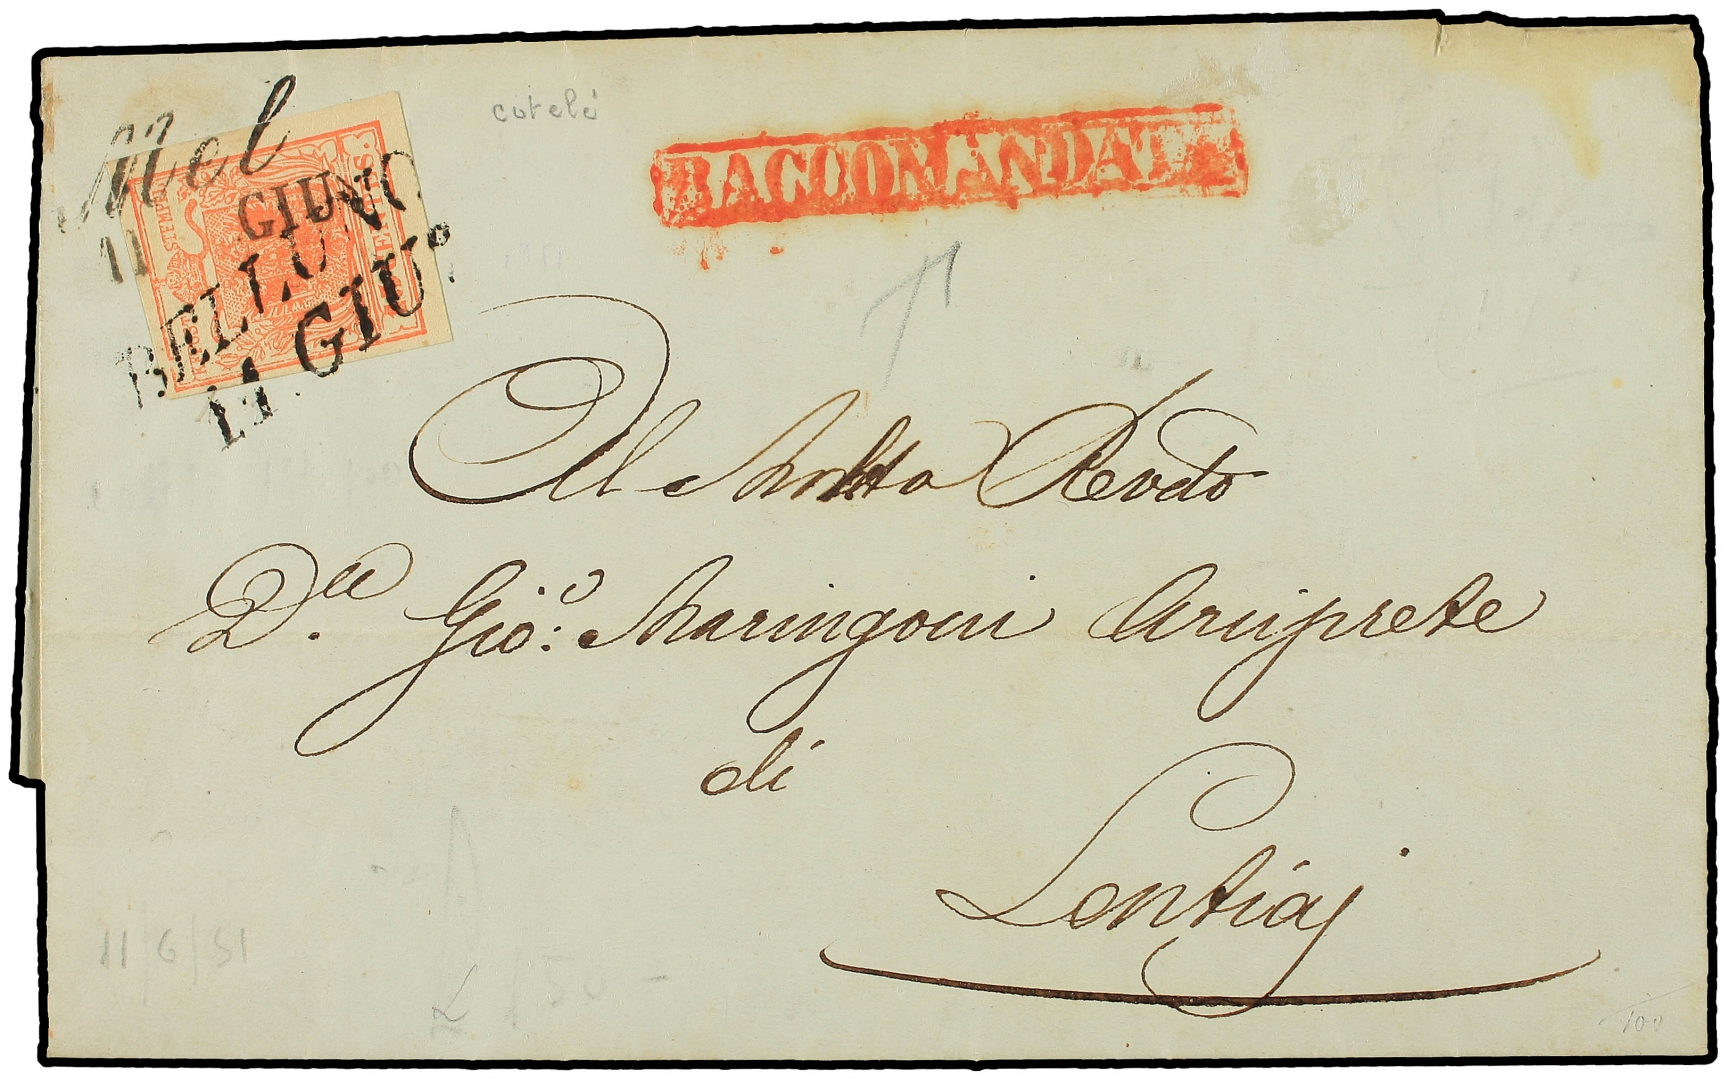 Mel
11 GIUNO
BELLUNO
11. GIU:
cotelé
RACCOMANDATA
Al Molto Revdo
Dn. Gio: Maringoni Arciprete
di
Lentiaj
11/6/51
£ 150-
100